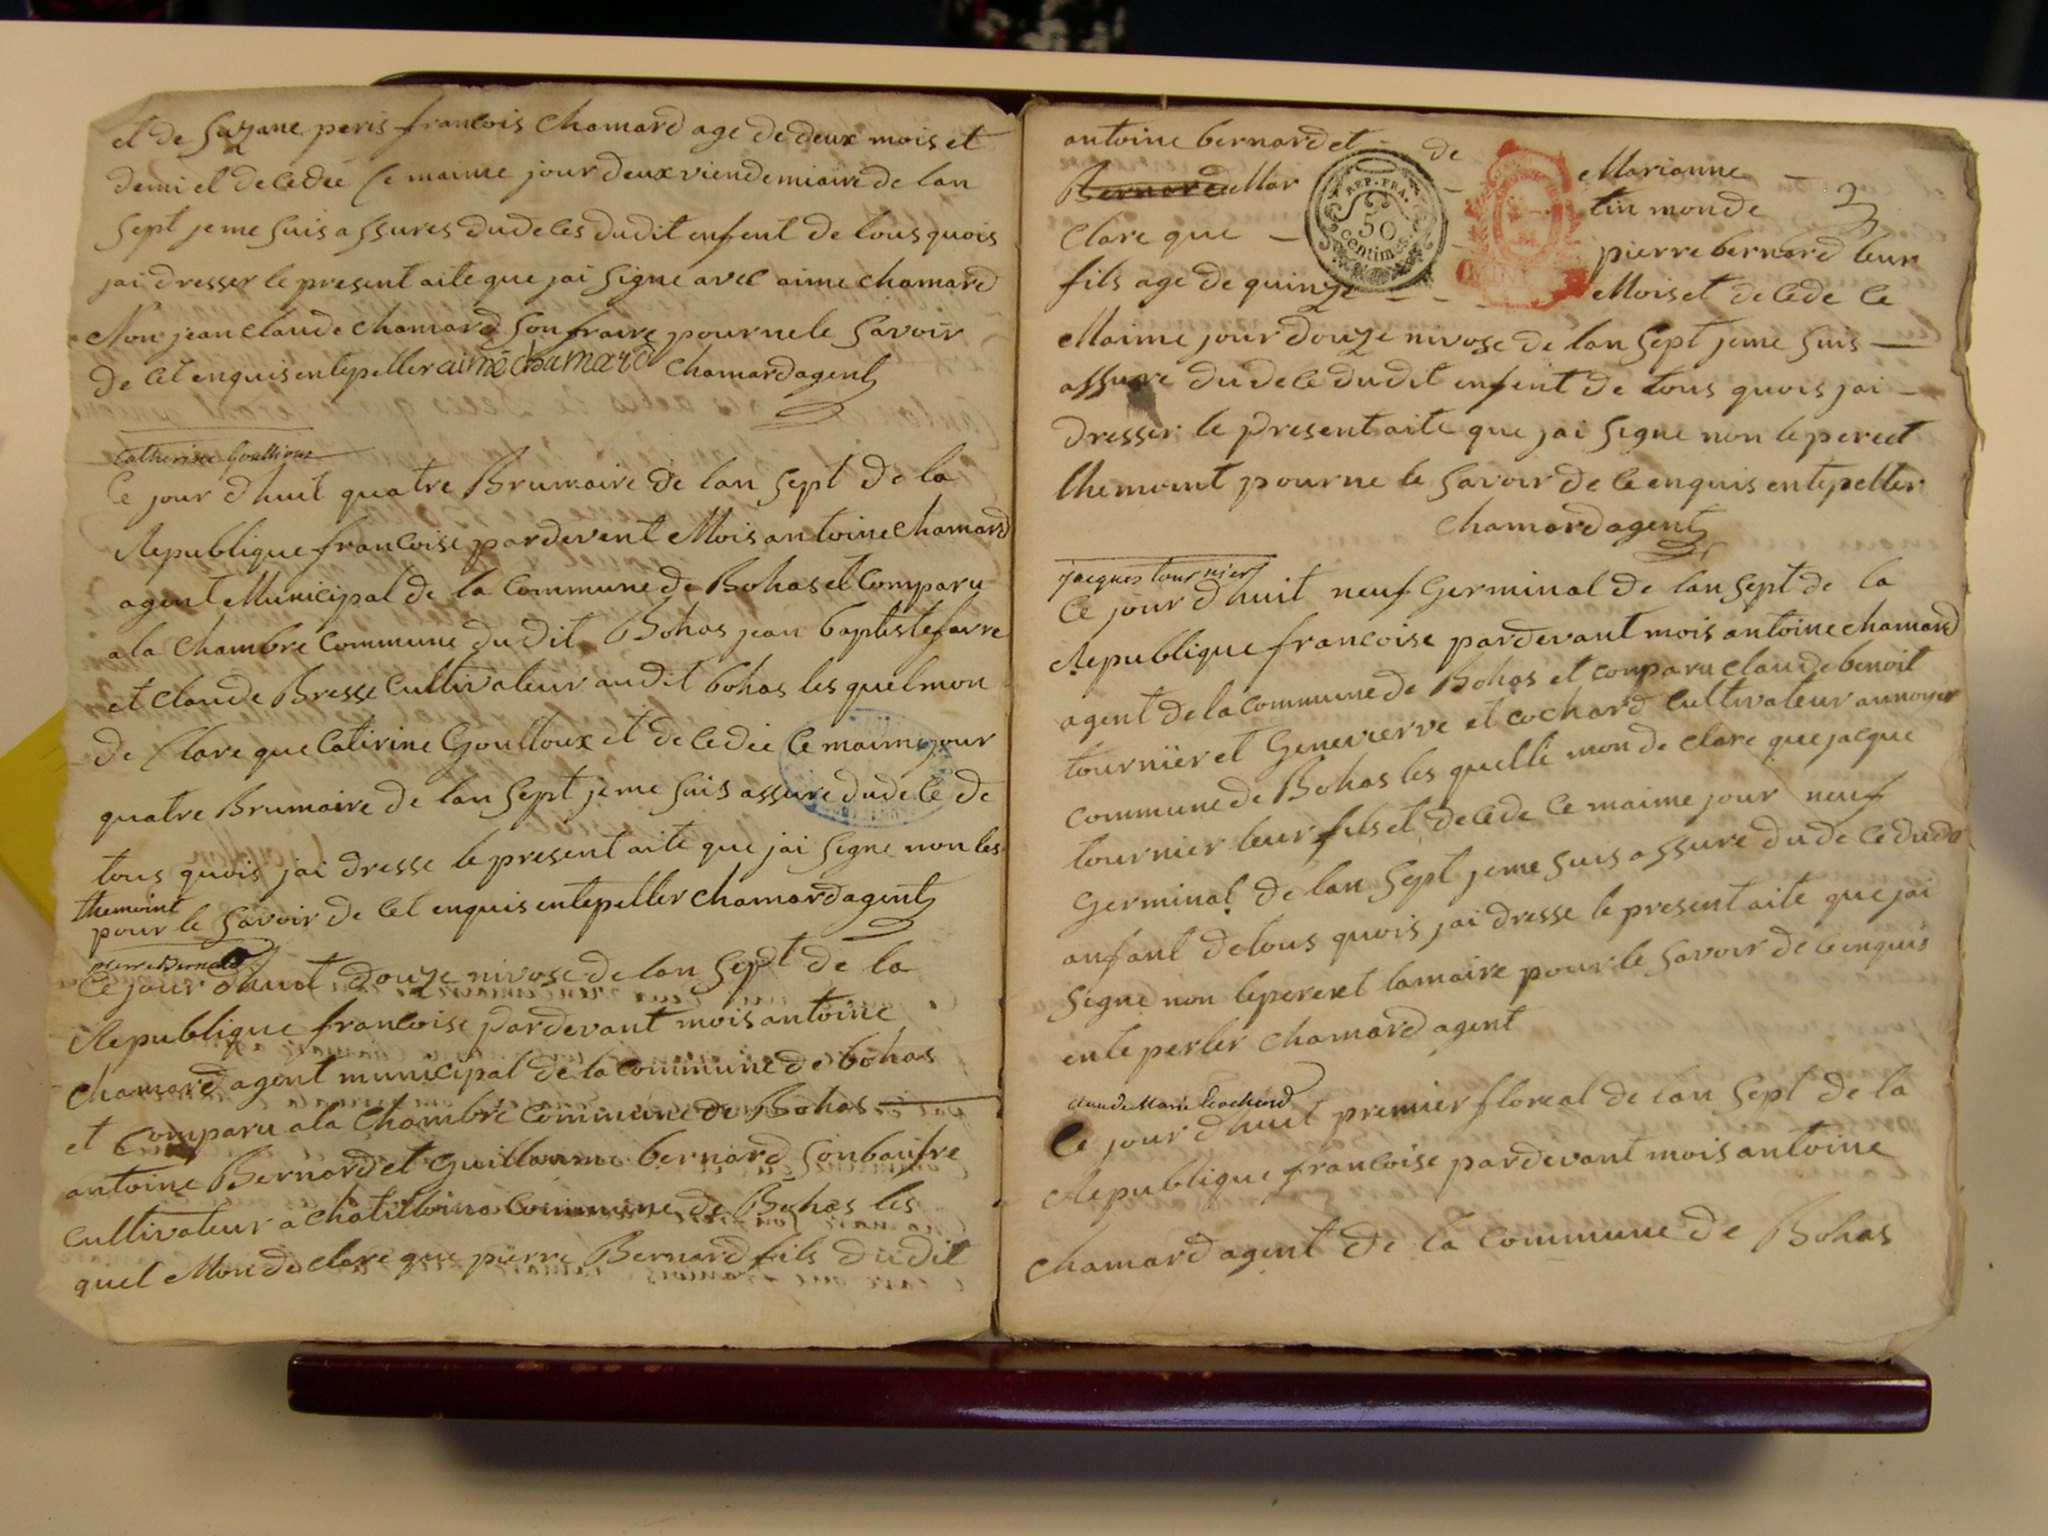 et de Suzane peris francois chamard age de deux mois et
demi et decedée ce maime jour deux viendemiaire de lan
sept je me suis assures du deces du dit enfent de tous quois
jai dresser le present aite que jai signe avec aime chamard
Non jean claude chamard son fraire pour ne le savoir
de cet enquis entepeller aimé chamard chamard agent
Catherine Goulloux
Ce jour dhuit quatre Brumaire de lan sept de la
Republique francoise pardevent Mois antoine chamard
agent Municipal de la commune de Bohas et comparu
a la chambre commune dudit Bohas jean baptiste favre
et claude Bresse cultivateur audit bohas les quel mon
de clare que Catirine Goulloux et decedée ce maime jour
quatre Brumaire de lan sept je me suis assure du dece de
tous quois jai dresse le present aite que jai signe non les
themoint
pour le savoir de cet enquis entepeller chamard agent
pierre Bernard
Ce jour dhuit douze nivose de lan sept de la
Republique francoise pardevant mois antoine
chamard agent municipal de la commune de bohas
et comparu a la chambre commune de Bohas
antoine Bernard et Guillaume bernard son baufre
cultivateur a chatilloina commune de Bohas les
quel Mon de clare que pierre Bernard fils dudit
antoine bernard et de Marianne
Bernard Mar tin mon de
REP. FRA.
50
centimes
clare que pierre bernard leur
fils age de quinze Mois et decede ce
Maime jour douze nivose de lan sept je me suis
assure du dece dudit enfent de tous quois jai
dresser le present aite que jai signe non le pere et
lhemoint pour ne le savoir de ce enquis entepeller
chamard agent
jacques tournier
Ce jour dhuit neuf Germinal de lan sept de la
Republique francoise pardevant mois antoine chamard
agent de la commune de Bohas et comparu claude benoit
tournier et Genevierve et cochard cultivateur au noyer
commune de Bohas les quelle mon de clare que jacque
tournier leur fils et decede ce maime jour neuf
Germinal de lan sept je me suis assure du dece dudi
anfant de tous quois jai dresse le present aite que jai
signe non le pere et la maire pour le savoir de ce enquis
ente perler chamard agent
claude Marie Cochard
Ce jour dhuit premier floreal de lan sept de la
Republique francoise pardevant mois antoine
chamard agent de la commune de Bohas